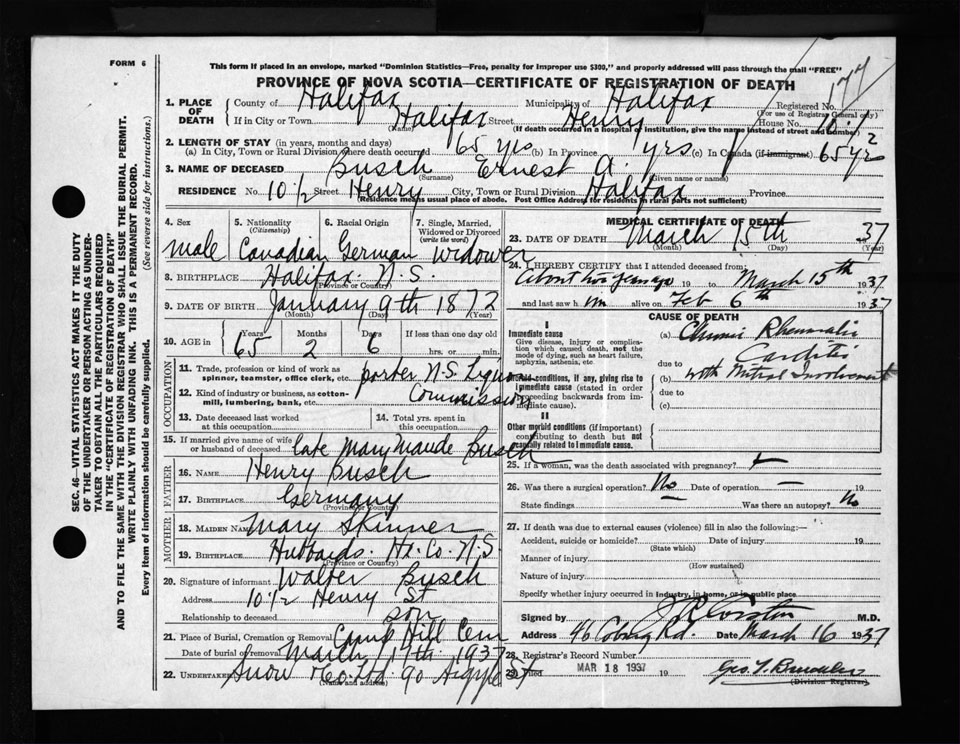 FORM 6
This form if placed in an envelope, marked "Dominion Statistics—Free, penalty for improper use $300," and properly addressed will pass through the mail "FREE"
PROVINCE OF NOVA SCOTIA—CERTIFICATE OF REGISTRATION OF DEATH
177
1. PLACE OF DEATH
County of Halifax Municipality of Halifax Registered No.
(For use of Registrar General only)
If in City or Town Halifax Street Henry House No. 10 1/2
(Name) (If death occurred in a hospital or institution, give the name instead of street and number)
2. LENGTH OF STAY (in years, months and days)
(a) In City, Town or Rural Division where death occurred 65 yrs (b) In Province yrs (c) In Canada (if immigrant) 65 yrs
3. NAME OF DECEASED Busch Ernest A.
(Surname) (Given name or names)
RESIDENCE No. 10 1/2 Street Henry City, Town or Rural Division Halifax Province
(Residence means usual place of abode. Post Office Address for residents in rural parts not sufficient)
4. Sex
male
5. Nationality
(Citizenship)
Canadian
6. Racial Origin
German
7. Single, Married, Widowed or Divorced
(write the word)
Widower
8. BIRTHPLACE Halifax. N.S.
(Province or Country)
9. DATE OF BIRTH January 9th 1872
(Month) (Day) (Year)
10. AGE in
Years Months Days If less than one day old
65 2 6 hrs. or min.
OCCUPATION
11. Trade, profession or kind of work as
spinner, teamster, office clerk, etc. porter N.S. Liquor
12. Kind of industry or business, as cotton-
mill, lumbering, bank, etc. Commission
13. Date deceased last worked
at this occupation
14. Total yrs. spent in
this occupation
15. If married give name of wife
or husband of deceased late Mary Maude Busch
FATHER
16. NAME Henry Busch
17. BIRTHPLACE Germany
(Province or Country)
MOTHER
18. MAIDEN NAME Mary Skinner
19. BIRTHPLACE Hubbards. Hx. Co. N.S.
(Province or Country)
20. Signature of informant Walter Busch
Address 10 1/2 Henry St
Relationship to deceased son
21. Place of Burial, Cremation or Removal Camp Hill Cem
Date of burial or removal March 17th 1937
22. UNDERTAKER Snow & Co. Ltd. 90 Argyle St
(Name and address)
MEDICAL CERTIFICATE OF DEATH
23. DATE OF DEATH March 15th 37
(Month) (Day) (Year)
24. I HEREBY CERTIFY that I attended deceased from:
About two years ago 19 to March 15th 1937
and last saw h im alive on Feb 6th 1937
CAUSE OF DEATH
I
Immediate cause
Give disease, injury or complica-
tion which caused death, not the
mode of dying, such as heart failure,
asphyxia, asthenia, etc.
(a) Chronic Rheumatic
Carditis
due to
(b) with Mitral Involvement
due to
(c)
Morbid conditions, if any, giving rise to
immediate cause (stated in order
proceeding backwards from im-
mediate cause).
II
Other morbid conditions (if important)
contributing to death but not
causally related to immediate cause.
25. If a woman, was the death associated with pregnancy?
26. Was there a surgical operation? No Date of operation — 19
State findings — Was there an autopsy? No
27. If death was due to external causes (violence) fill in also the following:—
Accident, suicide or homicide? Date of injury 19
(State which)
Manner of injury
(How sustained)
Nature of injury
Specify whether injury occurred in industry, in home, or in public place
Signed by M.D.
Address 46 Coburg Rd. Date March 16 1937
28. Registrar's Record Number
29. Filed MAR 18 1937 19
(Division Registrar)
SEC. 46—VITAL STATISTICS ACT MAKES IT THE DUTY
OF THE UNDERTAKER OR PERSON ACTING AS UNDER-
TAKER TO OBTAIN ALL THE PARTICULARS REQUIRED
IN THE "CERTIFICATE OF REGISTRATION OF DEATH"
AND TO FILE THE SAME WITH THE DIVISION REGISTRAR WHO SHALL ISSUE THE BURIAL PERMIT.
WRITE PLAINLY WITH UNFADING INK. THIS IS A PERMANENT RECORD.
Every item of information should be carefully supplied. (See reverse side for instructions.)